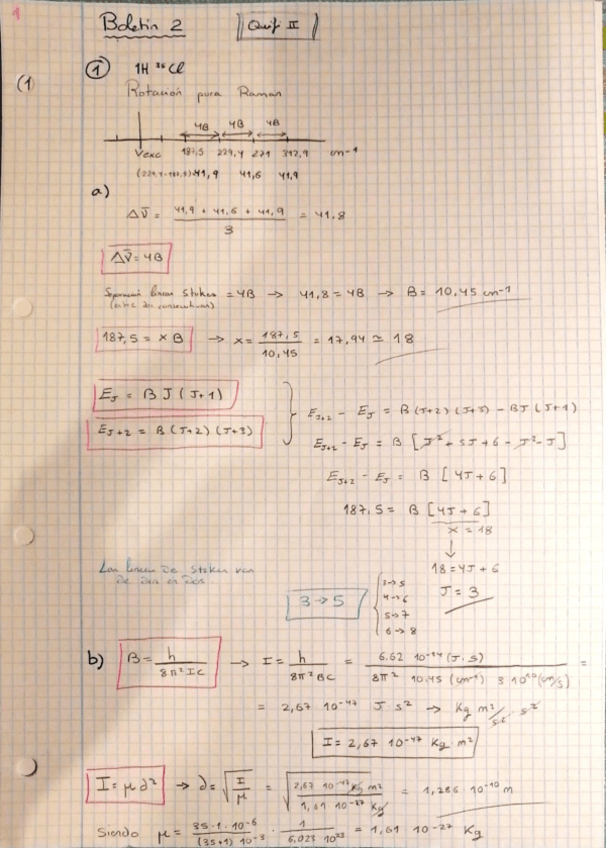 1
Boletín 2 Quif II
(1
① 1H ³⁵Cl
Rotación pura Raman
4B 4B 4B
Vexc 187,5 229,4 271 312,9 cm-1
(229,4-187,5)=41,9 41,6 41,9
a)
Δν̄ = (41,9 + 41,6 + 41,9) / 3 = 41,8
Δν̄ = 4B
Separación líneas Stokes = 4B → 41,8 = 4B → B = 10,45 cm-1
187,5 = x B → x = 187,5 / 10,45 = 17,94 ≃ 18
E_J = B J (J+1)
E_J+2 = B (J+2) (J+3)
E_J+2 - E_J = B (J+2) (J+3) - BJ (J+1)
E_J+2 - E_J = B [J² + 5J + 6 - J² - J]
E_J+2 - E_J = B [4J + 6]
187,5 = B [4J + 6]
x = 18
↓
18 = 4J + 6
J = 3
Las líneas de Stokes van
de dos en dos
3 → 5
3 → 5
4 → 6
5 → 7
6 → 8
b) B = h / 8π² I C → I = h / 8π² B C = 6.62 10⁻³⁴ (J. s) / 8π² 10.45 (cm⁻¹) 3 10¹⁰ (cm/s) =
= 2,67 10⁻⁴⁷ J s² → Kg m²/s² · s²
I = 2,67 10⁻⁴⁷ Kg m²
I = μ d² → d = √(I / μ) = √(2,67 10⁻⁴⁷ Kg m² / 1,61 10⁻²⁷ Kg) = 1,286 · 10⁻¹⁰ m
Siendo μ = 35 · 1 · 10⁻⁶ / (35+1) 10⁻³ · 1 / 6.023 10²³ = 1,61 10⁻²⁷ Kg